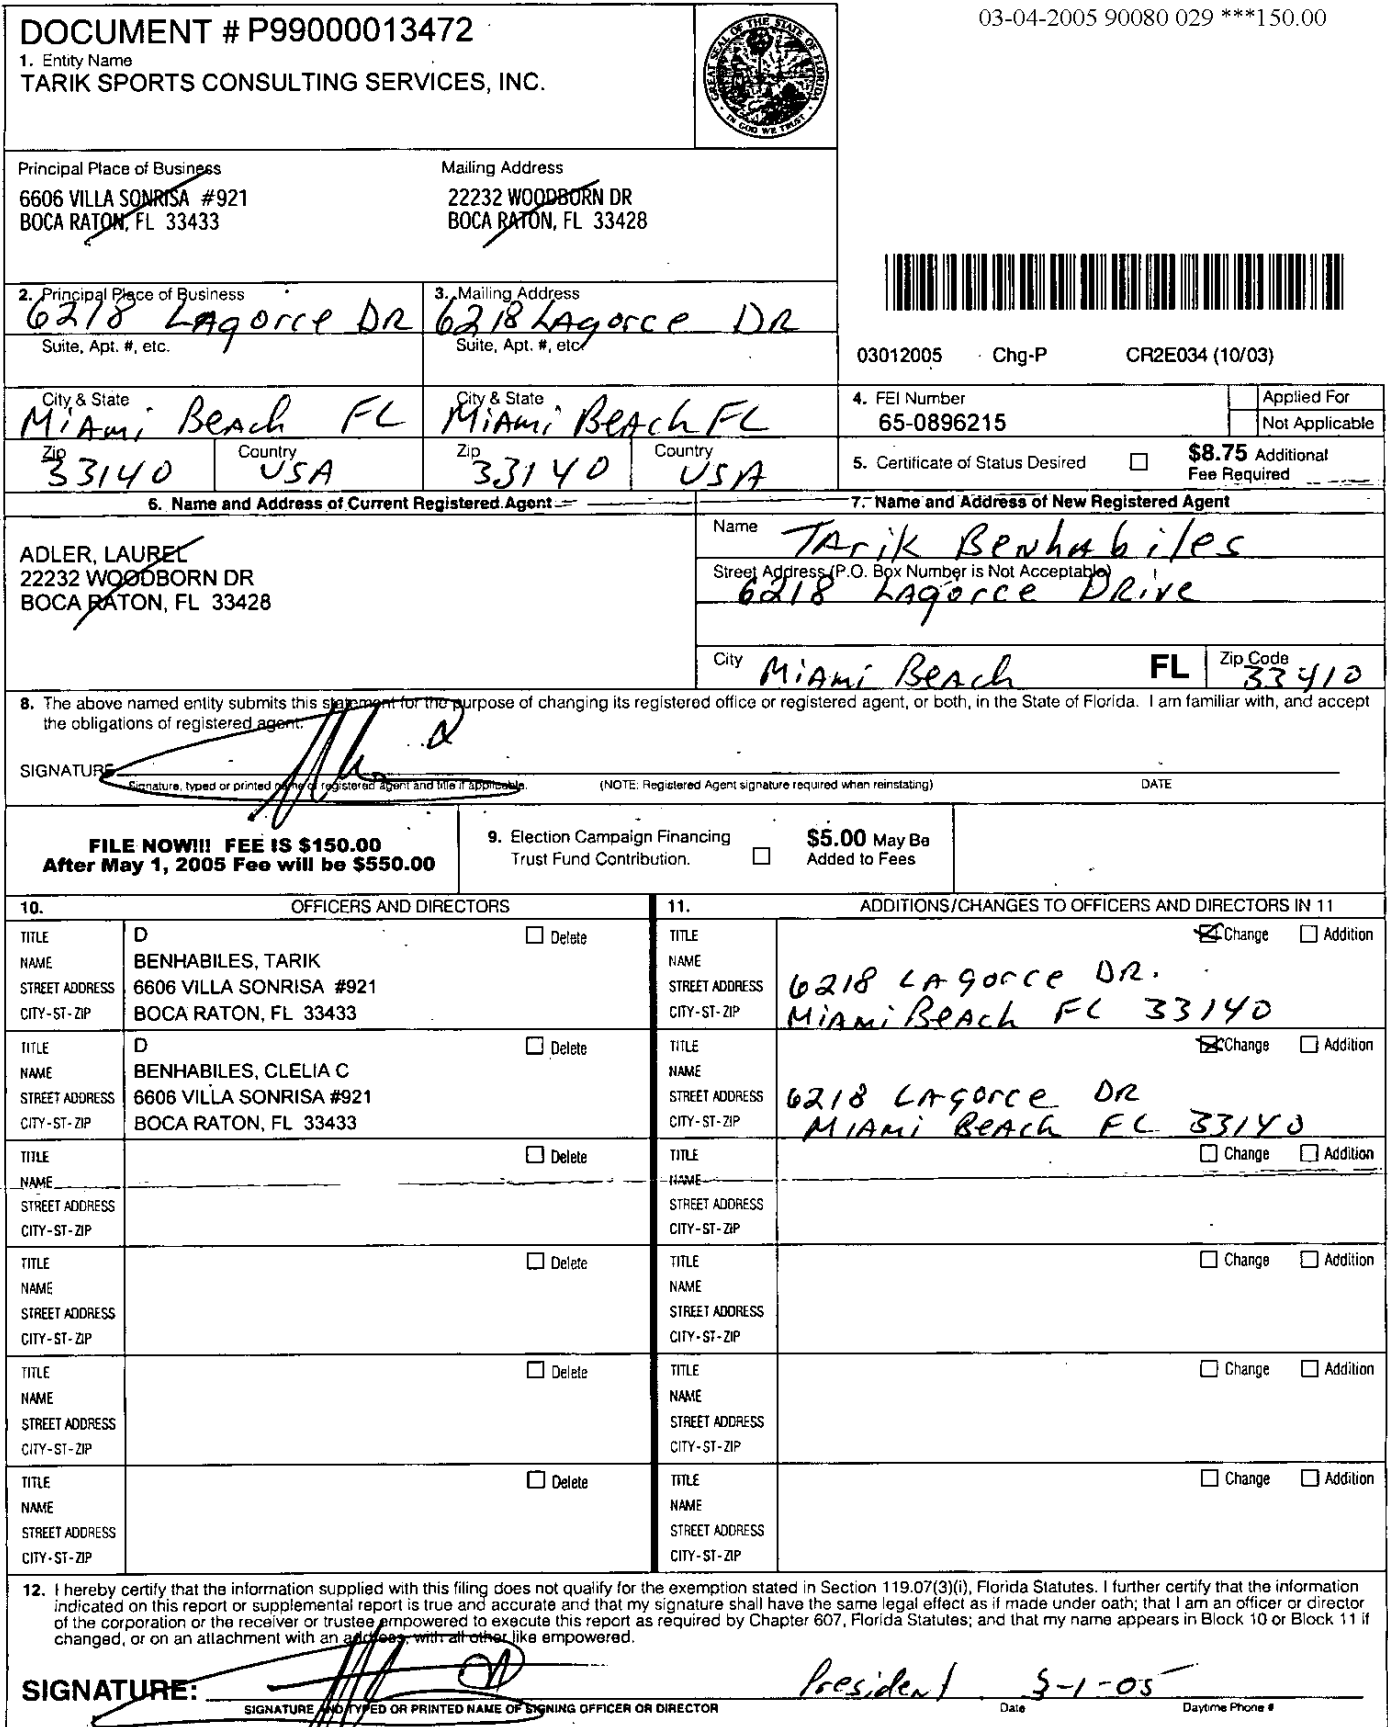 DOCUMENT # P99000013472
03-04-2005 90080 029 ***150.00
1. Entity Name
TARIK SPORTS CONSULTING SERVICES, INC.
GREAT SEAL OF THE STATE OF FLORIDA
IN GOD WE TRUST
Principal Place of Business
6606 VILLA SONRISA #921
BOCA RATON, FL 33433
Mailing Address
22232 WOODBORN DR
BOCA RATON, FL 33428
2. Principal Place of Business
6218 LAgorce DR
Suite, Apt. #, etc.
3. Mailing Address
6218 LAgorce DR
Suite, Apt. #, etc.
03012005 Chg-P CR2E034 (10/03)
City & State
MiAmi BeAch FL
City & State
MiAmi BeAch FL
Zip
33140
Country
USA
Zip
33140
Country
USA
4. FEI Number
65-0896215
Applied For
Not Applicable
5. Certificate of Status Desired
$8.75 Additional
Fee Required
6. Name and Address of Current Registered Agent
ADLER, LAUREL
22232 WOODBORN DR
BOCA RATON, FL 33428
7. Name and Address of New Registered Agent
Name TArik BenhAbiles
Street Address (P.O. Box Number is Not Acceptable)
6218 LAgorce DRive
City MiAmi BeAch FL Zip Code 33410
8. The above named entity submits this statement for the purpose of changing its registered office or registered agent, or both, in the State of Florida. I am familiar with, and accept
the obligations of registered agent.
SIGNATURE
Signature, typed or printed name of registered agent and title if applicable.
(NOTE: Registered Agent signature required when reinstating)
DATE
FILE NOW!!! FEE IS $150.00
After May 1, 2005 Fee will be $550.00
9. Election Campaign Financing
Trust Fund Contribution.
$5.00 May Be
Added to Fees
10. OFFICERS AND DIRECTORS
11. ADDITIONS/CHANGES TO OFFICERS AND DIRECTORS IN 11
TITLE D Delete
NAME BENHABILES, TARIK
STREET ADDRESS 6606 VILLA SONRISA #921
CITY-ST-ZIP BOCA RATON, FL 33433
TITLE Change Addition
NAME
STREET ADDRESS 6218 LAgorce DR.
CITY-ST-ZIP MiAmi BeAch FL 33140
TITLE D Delete
NAME BENHABILES, CLELIA C
STREET ADDRESS 6606 VILLA SONRISA #921
CITY-ST-ZIP BOCA RATON, FL 33433
TITLE Change Addition
NAME
STREET ADDRESS 6218 LAgorce DR
CITY-ST-ZIP MIAmi BeAch FL 33140
TITLE Delete
NAME
STREET ADDRESS
CITY-ST-ZIP
TITLE Change Addition
NAME
STREET ADDRESS
CITY-ST-ZIP
TITLE Delete
NAME
STREET ADDRESS
CITY-ST-ZIP
TITLE Change Addition
NAME
STREET ADDRESS
CITY-ST-ZIP
TITLE Delete
NAME
STREET ADDRESS
CITY-ST-ZIP
TITLE Change Addition
NAME
STREET ADDRESS
CITY-ST-ZIP
TITLE Delete
NAME
STREET ADDRESS
CITY-ST-ZIP
TITLE Change Addition
NAME
STREET ADDRESS
CITY-ST-ZIP
12. I hereby certify that the information supplied with this filing does not qualify for the exemption stated in Section 119.07(3)(i), Florida Statutes. I further certify that the information
indicated on this report or supplemental report is true and accurate and that my signature shall have the same legal effect as if made under oath; that I am an officer or director
of the corporation or the receiver or trustee empowered to execute this report as required by Chapter 607, Florida Statutes; and that my name appears in Block 10 or Block 11 if
changed, or on an attachment with an address, with all other like empowered.
SIGNATURE: President 3-1-05
SIGNATURE AND TYPED OR PRINTED NAME OF SIGNING OFFICER OR DIRECTOR Date Daytime Phone #